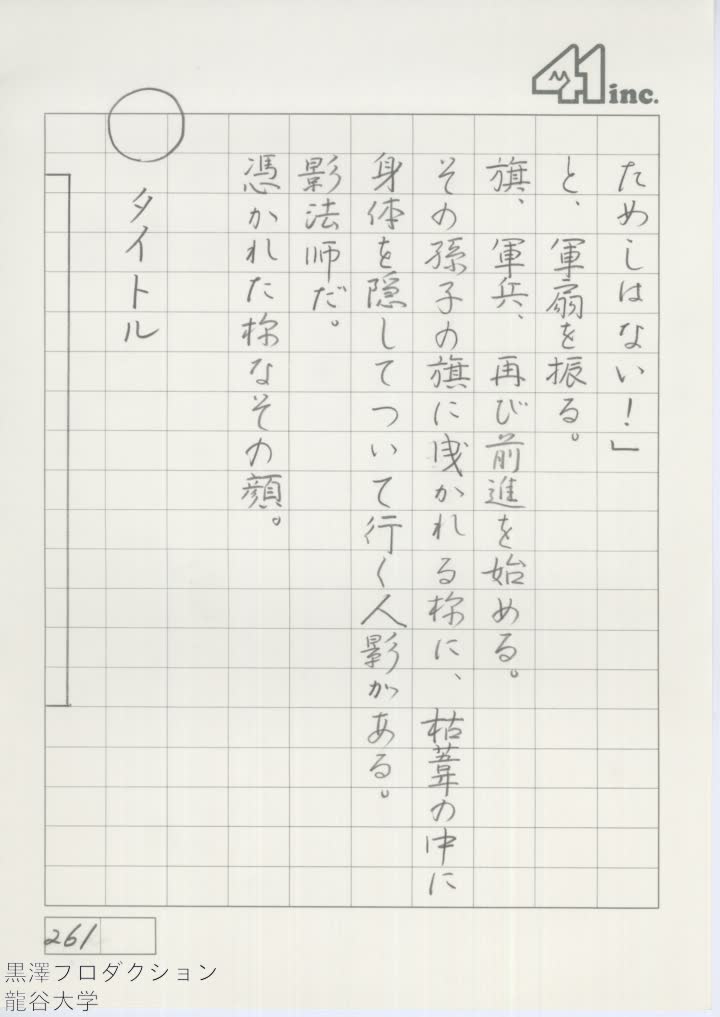 41 inc.
ためしはない！」
と、軍扇を振る。
旗、軍兵、再び前進を始める。
その孫子の旗に曳かれる様に、枯葦の中に
身体を隠してついて行く人影がある。
影法師だ。
憑かれた様なその顔。
○タイトル
261
黒澤プロダクション
龍谷大学